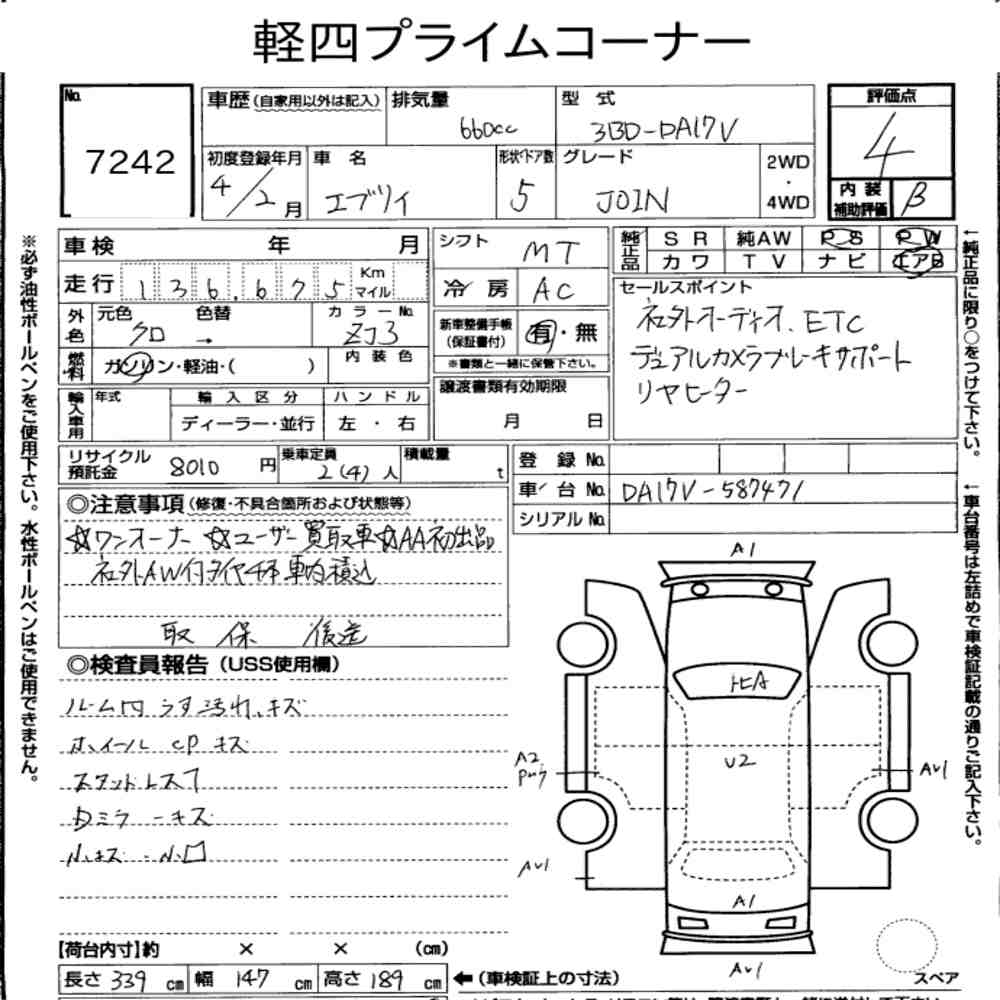 軽四プライムコーナー
No. 7242
車歴(自家用以外は記入) 排気量 660cc 型式 3BD-DA17V
評価点 4
初度登録年月 4/2月 車名 エブリイ 形状・ドア数 5 グレード JOIN 2WD・4WD
内装補助評価 B
車検 年 月
走行 136,675 Km マイル
外色 元色 クロ 色替 → カラーNo. ZJ3
燃料 ガソリン・軽油・( ) 内装色
輸入車用 年式 輸入区分 ディーラー・並行 ハンドル 左・右
シフト MT
冷房 AC
新車整備手帳(保証書付) 有・無
※書類と一緒に保管下さい。
譲渡書類有効期限
月 日
純正品 SR 純AW PS PW
カワ TV ナビ エアB
セールスポイント
社外オーディオ、ETC
デュアルカメラブレーキサポート
リヤヒーター
リサイクル預託金 8010円 乗車定員 2(4)人 積載量 t
登録No.
車台No. DA17V-587471
シリアルNo.
◎注意事項(修復・不具合箇所および状態等)
☆ワンオーナー ☆ユーザー買取車☆AA初出品
社外AW付タイヤ4本車内積込
取 保 後送
◎検査員報告(USS使用欄)
ルーム内うす汚れ、キズ
ホイールCPキズ
スタットレス7
ミラーキズ
小キズ・小凹
A1
トビA
U2
A2
AU1
AU1
A1
AU1
スペア
【荷台内寸】約 × × (cm)
長さ 339cm 幅 147cm 高さ 189cm ←(車検証上の寸法)
※必ず油性ボールペンをご使用下さい。水性ボールペンはご使用できません。
←純正品に限り○をつけて下さい。
←車台番号は左詰めで車検証記載の通りご記入下さい。